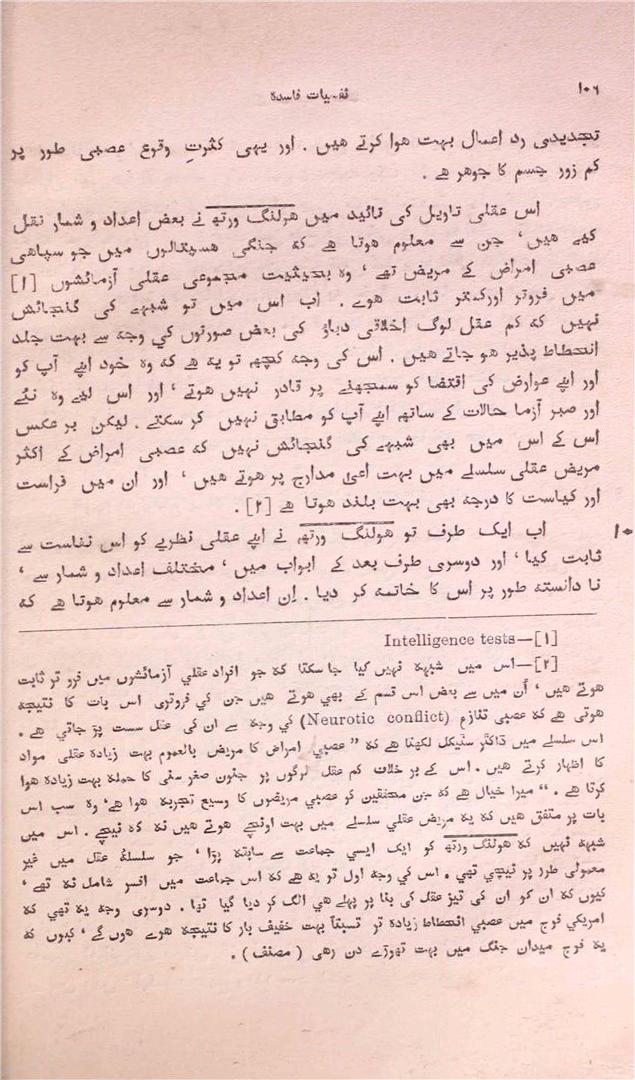 ۱۰۶
نفسیات فاسدہ
تجدیدی رد اعمال بہت ہوا کرتے ہیں . اور یہی کثرتِ وقوع عصبی طور پر
کم زور جسم کا جوہر ہے .
اس عقلی تاویل کی تائید میں ہولنگ ورتھ نے بعض اعداد و شمار نقل
کیے ہیں ‘ جن سے معلوم ہوتا ہے کہ جنگی ہسپتالوں میں جو سپاہی
عصبی امراض کے مریض تھے ‘ وہ بحیثیت مجموعی عقلی آزمائشوں [۱]
میں فروتر اورکمتر ثابت ہوے . اب اس میں تو شبہے کی گنجائش
نہیں کہ کم عقل لوگ اخلاقی دباؤ کی بعض صورتوں کی وجہ سے بہت جلد
انحطاط پذیر ہو جاتے ہیں . اس کی وجہ کچھہ تو یہ ہے کہ وہ خود اپنے آپ کو
اور اپنے عوارض کی اقتضا کو سمجھنے پر قادر نہیں ہوتے ‘ اور اس لیے وہ نئے
اور صبر آزما حالات کے ساتھ اپنے آپ کو مطابق نہیں کر سکتے . لیکن بر عکس
اس کے اس میں بھی شبہے کی گنجائش نہیں کہ عصبی امراض کے اکثر
مریض عقلی سلسلے میں بہت اعلیٰ مدارج پر ہوتے ہیں ‘ اور ان میں فراست
اور کیاست کا درجہ بھی بہت بلند ہوتا ہے [۲] .
۱۰
اب ایک طرف تو ہولنگ ورتھہ نے اپنے عقلی نظریے کو اس نفاست سے
ثابت کیا ‘ اور دوسری طرف بعد کے ابواب میں ‘ مختلف اعداد و شمار سے ‘
نا دانستہ طور پر اس کا خاتمہ کر دیا . اِن اعداد و شمار سے معلوم ہوتا ہے کہ
[۱]—Intelligence tests
[۲]—اس میں شبہہ نہیں کیا جا سکتا کہ جو افراد عقلی آزمائشوں میں فرو تر ثابت
ہوتے ہیں ‘ اُن میں سے بعض اس قسم کے بھی ہوتے ہیں جن کی فروتری اس بات کا نتیجہ
ہوتی ہے کہ عصبی تنازع (Neurotic conflict) کی وجہ سے ان کی عقل سست پڑ جاتی ہے .
اس سلسلے میں ڈاکٹر لکھتا ہے کہ ” عصبی امراض کا مریض بالعموم بہت زیادہ عقلی مواد
کا اظہار کرتے ہیں . اس کے بر خلاف کم عقل لوگوں پر جنون صغر سنی کا حملہ بہت زیادہ ہوا
کرتا ہے . “ میرا خیال ہے کہ جن محققین کو عصبی مریضوں کا وسیع تجربہ ہوا ہے‘ وہ سب اس
بات پر متفق ہیں کہ یہ مریض عقلی سلسلے میں بہت اونچے ہوتے ہیں نہ کہ نیچے . اس میں
شبہہ نہیں کہ ہولنگ ورتھہ کو ایک ایسی جماعت سے سابقہ پڑا ‘ جو سلسلۂ عقل میں غیر
معمولی طور پر نیچی تھی . اس کی وجہ اول تو یہ ہے کہ اس جماعت میں افسر شامل نہ تھے ‘
کیوں کہ ان کو ان کی تیز عقل کی بنا پر پہلے ہی الگ کر دیا گیا تھا . دوسری وجہ یہ تھی کہ
امریکی فوج میں عصبی انحطاط زیادہ تر نسبتاً بہت خفیف بار کا نتیجہ ہوے ہوں گے ‘ کیوں کہ
یہ فوج میدان جنگ میں بہت تھوڑے دن رہی ( مصنف ) .